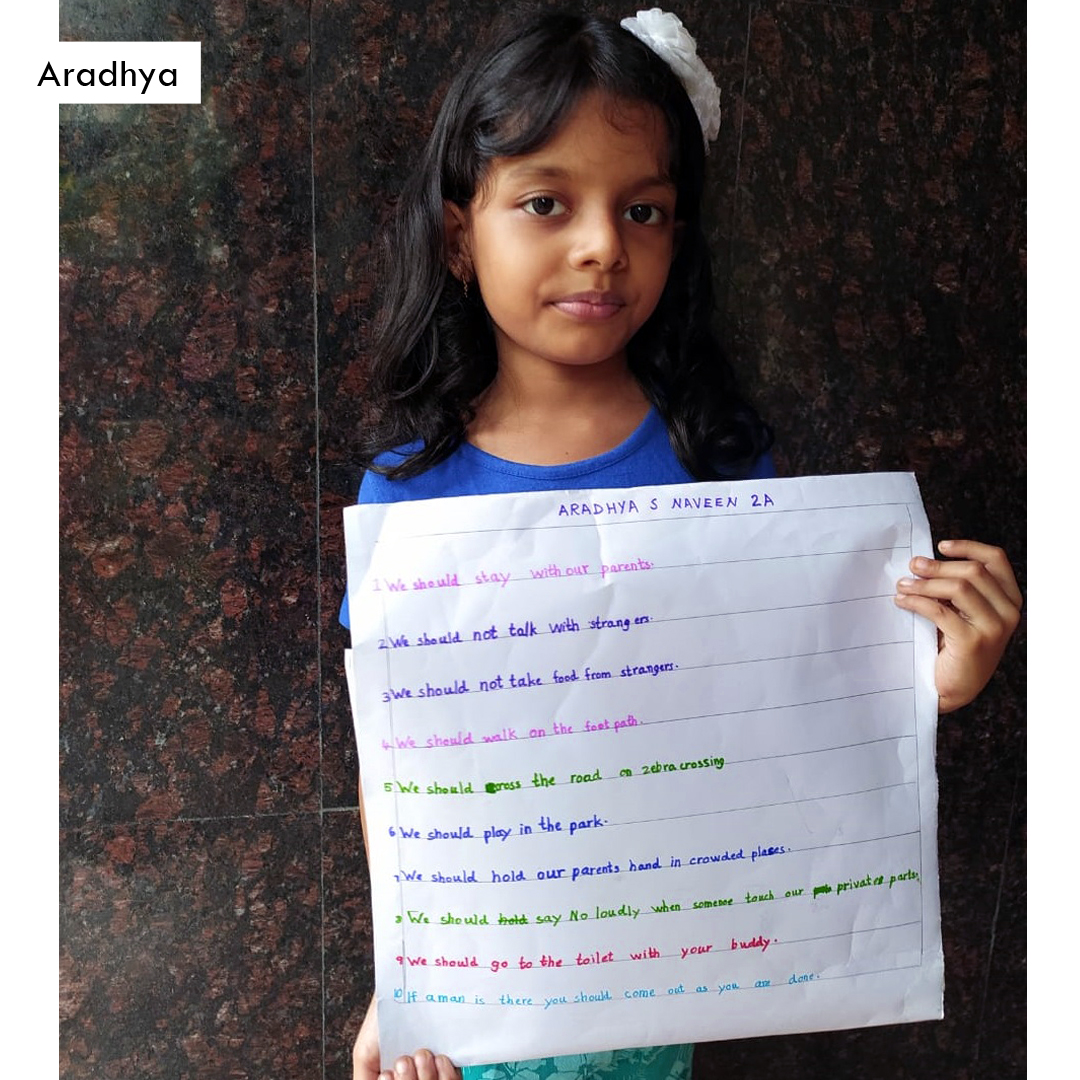 Aradhya
ARADHYA S NAVEEN 2A
1 We should stay with our parents.
2 We should not talk with strangers.
3 We should not take food from strangers.
4 We should walk on the foot path.
5 We should cross the road on zebra crossing
6 We should play in the park.
7 We should hold our parents hand in crowded plases.
8 We should hold say No loudly when someone touch our private parts.
9 We should go to the toilet with your buddy.
10 If a man is there you should come out as you are done.